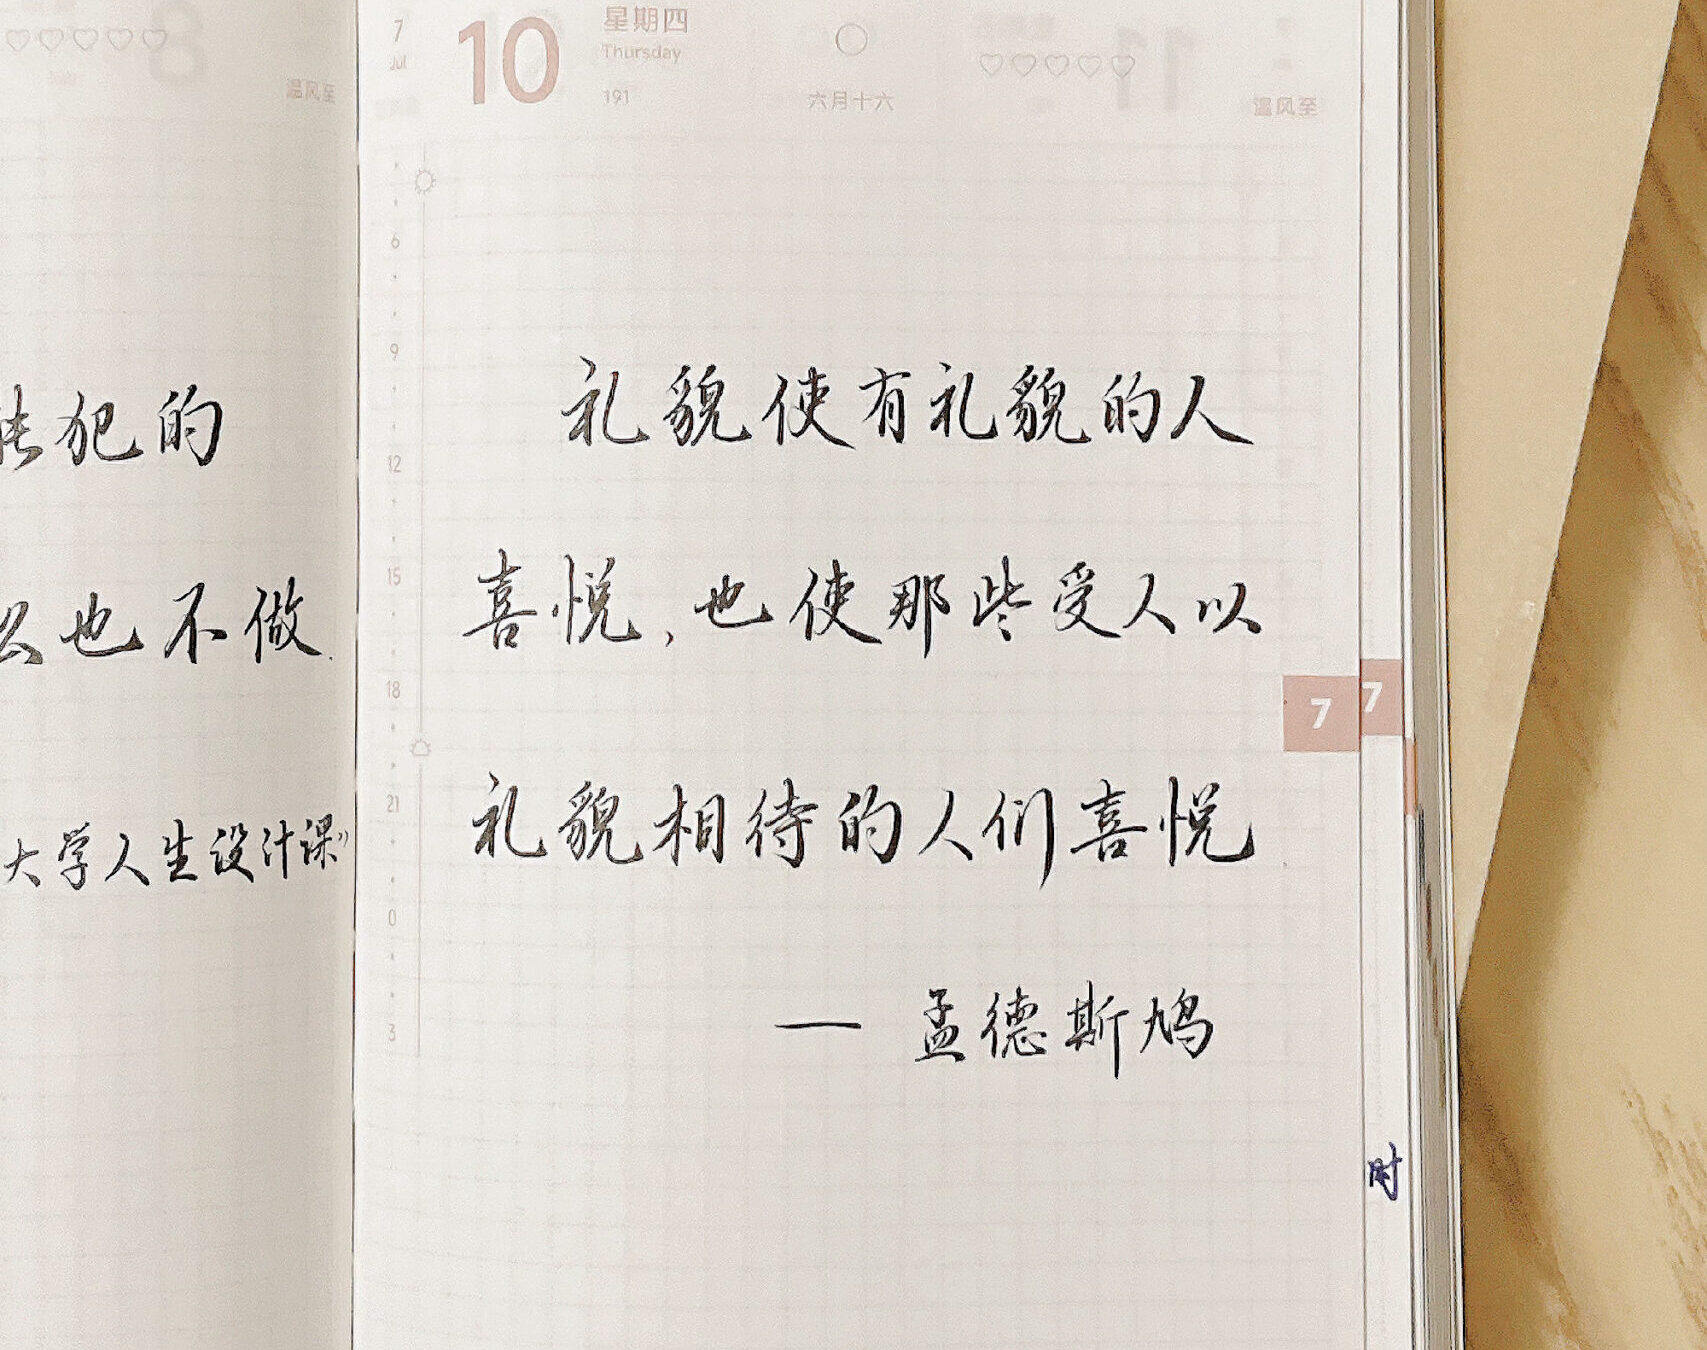 犯的
么也不做.
大学人生设计课》
7
Jul
10
星期四
Thursday
191
六月十六
温风至
温风至
6
9
12
15
18
21
0
3
礼貌使有礼貌的人
喜悦,也使那些受人以
礼貌相待的人们喜悦
— 孟德斯鸠
7
7
时